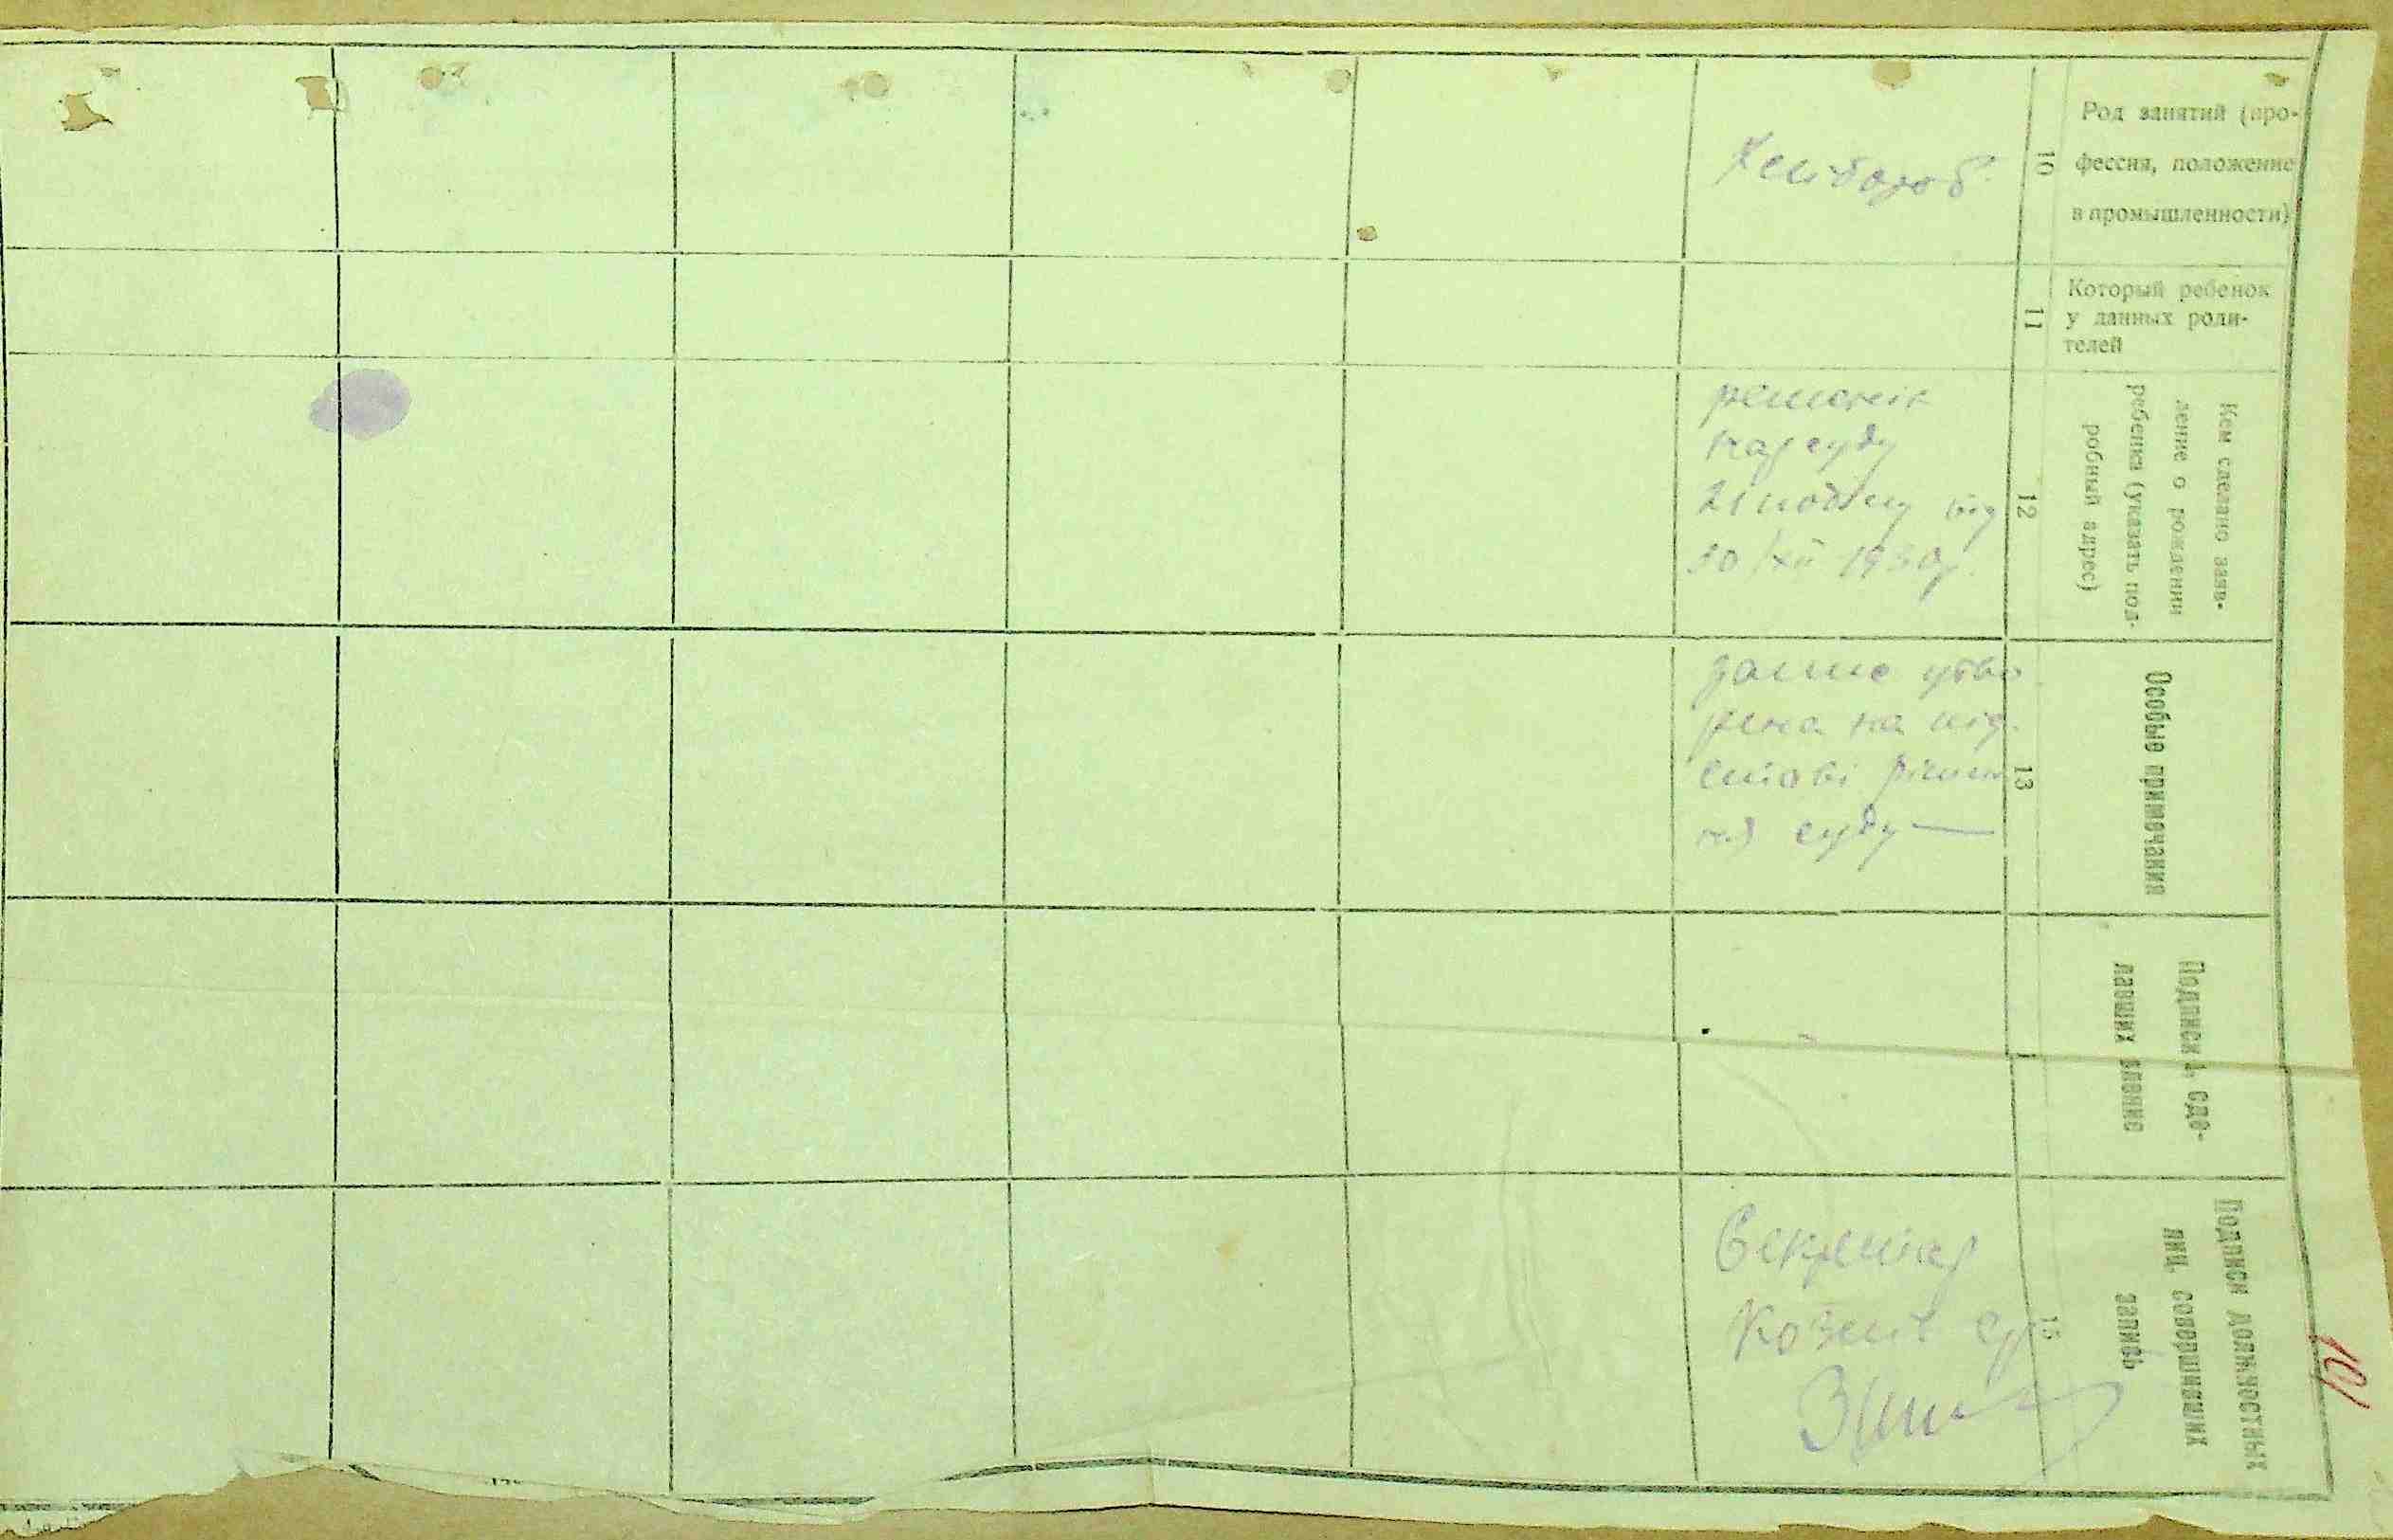 Род занятий (про-
фессия, положение
в промышленности)
10
Хлібороб
Который ребенок
у данных роди-
телей
11
Кем сделано заяв-
ление о рождении
ребенка (указать под-
робный адрес)
12
нарсуду
від
30/XII 1930р.
Особые примечания
13
запис утво
рена на під
ставі рішен
ня суду —
Подписи сде-
лавших
Подписи должностных
лиц, совершивших
запись
15
Секретар